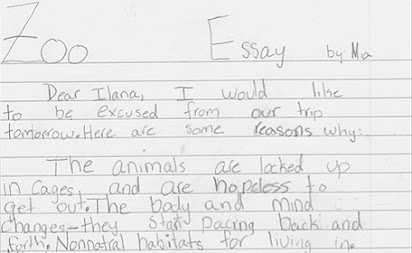 Zoo Essay by Mia
Dear Ilana, I would like
to be excused from our trip
tomorrow. Here are some reasons why:
The animals are locked up
in cages, and are hopeless to
get out. The body and mind
changes—they start pacing back and
forth. Nonnatral habitats for living in.